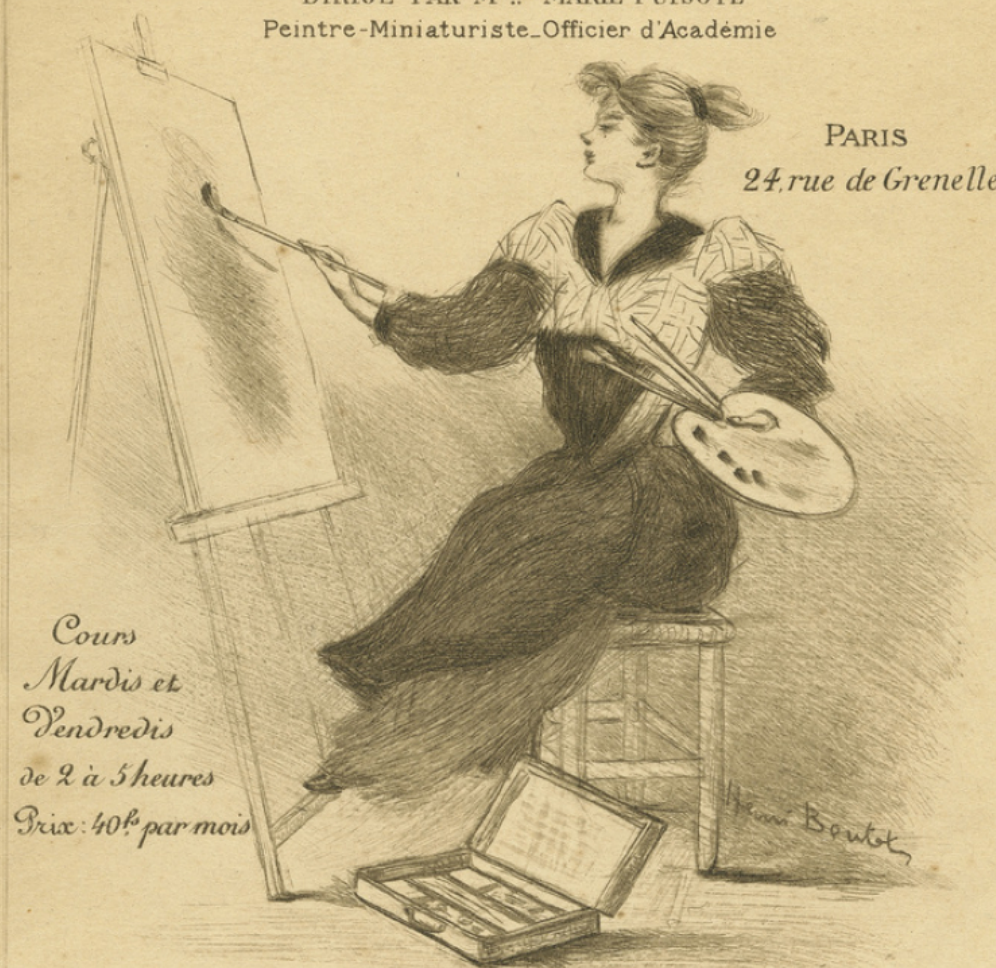 DIRIGÉ PAR M MARIE PUISOYE
Peintre-Miniaturiste_Officier d'Académie
PARIS
24, rue de Grenelle
Cours
Mardis et
Vendredis
de 2 à 5 heures
Prix : 40fs par mois
Henri Boutet